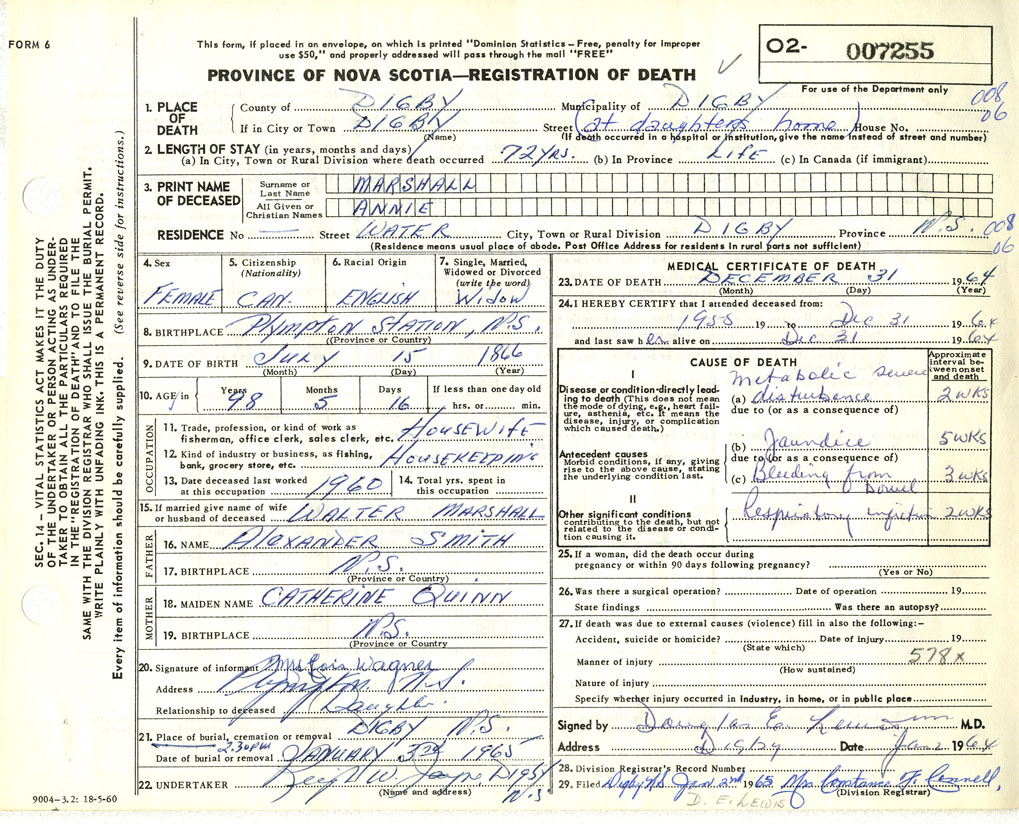 FORM 6
This form, if placed in an envelope, on which is printed "Dominion Statistics – Free, penalty for improper
use $50," and properly addressed will pass through the mail "FREE"
O2- 007255
For use of the Department only
PROVINCE OF NOVA SCOTIA—REGISTRATION OF DEATH
008
06
1. PLACE OF DEATH
County of DIGBY Municipality of DIGBY
If in City or Town DIGBY Street (at daughters home) House No.
(Name) (If death occurred in a hospital or institution, give the name instead of street and number)
2. LENGTH OF STAY (in years, months and days)
(a) In City, Town or Rural Division where death occurred 72 YRS. (b) In Province LIFE (c) In Canada (if immigrant)
3. PRINT NAME OF DECEASED
Surname or Last Name MARSHALL
All Given or Christian Names ANNIE
RESIDENCE No — Street WATER City, Town or Rural Division DIGBY Province N.S. 008
06
(Residence means usual place of abode. Post Office Address for residents in rural parts not sufficient)
4. Sex FEMALE
5. Citizenship (Nationality) CAN.
6. Racial Origin ENGLISH
7. Single, Married, Widowed or Divorced (write the word) WIDOW
8. BIRTHPLACE PLYMPTON STATION, N.S.
(Province or Country)
9. DATE OF BIRTH JULY 15 1866
(Month) (Day) (Year)
10. AGE in Years 98 Months 5 Days 16 If less than one day old hrs. or min.
OCCUPATION
11. Trade, profession, or kind of work as fisherman, office clerk, sales clerk, etc. HOUSEWIFE
12. Kind of industry or business, as fishing, bank, grocery store, etc. HOUSEKEEPING
13. Date deceased last worked at this occupation 1960
14. Total yrs. spent in this occupation
15. If married give name of wife or husband of deceased WALTER MARSHALL
FATHER
16. NAME ALEXANDER SMITH
17. BIRTHPLACE N.S.
(Province or Country)
MOTHER
18. MAIDEN NAME CATHERINE QUINN
19. BIRTHPLACE N.S.
(Province or Country
20. Signature of informant Mrs Lois Wagner
Address Plympton N.S.
Relationship to deceased Daughter
21. Place of burial, cremation or removal DIGBY N.S.
2.30PM
Date of burial or removal JANUARY 3rd 1965
22. UNDERTAKER W. Jayne DIGBY
(Name and address) N.S
9004–3.2: 18-5-60
MEDICAL CERTIFICATE OF DEATH
23. DATE OF DEATH DECEMBER 31 1964
(Month) (Day) (Year)
24. I HEREBY CERTIFY that I attended deceased from:
1955 19 to Dec 31 64
and last saw her alive on Dec 31 1964
CAUSE OF DEATH
Approximate interval between onset and death
I
Disease or condition directly leading to death (This does not mean the mode of dying, e.g., heart failure, asthenia, etc. It means the disease, injury, or complication which caused death.)
Metabolic severe
(a) disturbence 2 WKS
due to (or as a consequence of)
(b) Jaundice 5 WKS
due to (or as a consequence of)
Antecedent causes
Morbid conditions, if any, giving rise to the above cause, stating the underlying condition last.
(c) Bleeding from Bowel 3 WKS
II
Other significant conditions contributing to the death, but not related to the disease or condition causing it.
Respiratory infection 2 WKS
25. If a woman, did the death occur during pregnancy or within 90 days following pregnancy?
(Yes or No)
26. Was there a surgical operation? Date of operation 19
State findings Was there an autopsy?
27. If death was due to external causes (violence) fill in also the following:–
Accident, suicide or homicide? Date of injury 19
(State which)
Manner of injury 578x
(How sustained)
Nature of injury
Specify whether injury occurred in industry, in home, or in public place
Signed by Douglas E. Lewis M.D.
Address Digby Date Jan 2 1964
28. Division Registrar's Record Number
29. Filed Digby N.S. Jan. 2nd 1965 Mrs Constance F. Connell,
(Division Registrar)
D. E. LEWIS
SEC. 14 – VITAL STATISTICS ACT MAKES IT THE DUTY
OF THE UNDERTAKER OR PERSON ACTING AS UNDER-
TAKER TO OBTAIN ALL THE PARTICULARS REQUIRED
IN THE "REGISTRATION OF DEATH" AND TO FILE THE
SAME WITH THE DIVISION REGISTRAR WHO SHALL ISSUE THE BURIAL PERMIT.
WRITE PLAINLY WITH UNFADING INK. THIS IS A PERMANENT RECORD.
Every item of information should be carefully supplied. (See reverse side for instructions.)